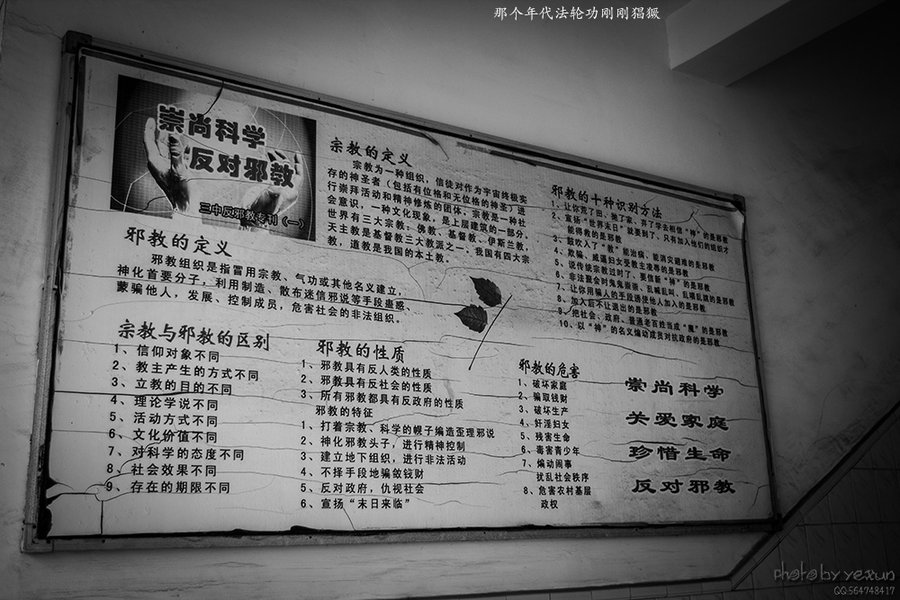 那个年代法轮功刚刚猖獗
崇尚科学
反对邪教
三中反邪教专刊（一）
邪教的定义
邪教组织是指冒用宗教、气功或其他名义建立，
神化首要分子，利用制造、散布迷信邪说等手段蛊惑、
蒙骗他人，发展、控制成员，危害社会的非法组织。
宗教的定义
宗教为一种组织，信徒对作为宇宙终极实
存的神圣者（包括有位格和无位格的神圣）进
行崇拜活动和精神修炼的团体。宗教是一种社
会意识，一种文化现象，是上层建筑的一部分。
世界有三大宗教：佛教、基督教、伊斯兰教，
天主教是基督教三大教派之一、我国有四大宗
教，道教是我国的本土教。
邪教的十种识别方法
1、让你荒了田、抛了家、弃了学去相信“神”的是邪教
2、宣扬“世界末日”就要到了，只有加入他们的组织才
能得救的是邪教
3、鼓吹入了“教”能治病、能消灾避难的是邪教
4、欺骗、威逼妇女受教主凌辱的是邪教
5、说传统宗教过时了，要信新“神”的是邪教
6、非法聚会时鬼鬼祟祟、乱喊乱叫、乱唱乱跳的是邪教
7、让你用骗人的手段诱使他人加入的是邪教
8、加入后不让退出的是邪教
9、把社会、政府、普通老百姓当成“魔”的是邪教
10、以“神”的名义煽动成员对抗政府的是邪教
宗教与邪教的区别
1、信仰对象不同
2、教主产生的方式不同
3、立教的目的不同
4、理论学说不同
5、活动方式不同
6、文化价值不同
7、对科学的态度不同
8、社会效果不同
9、存在的期限不同
邪教的性质
1、邪教具有反人类的性质
2、邪教具有反社会的性质
3、所有邪教都具有反政府的性质
邪教的特征
1、打着宗教、科学的幌子编造歪理邪说
2、神化邪教头子，进行精神控制
3、建立地下组织，进行非法活动
4、不择手段地骗敛钱财
5、反对政府，仇视社会
6、宣扬“末日来临”
邪教的危害
1、破坏家庭
2、骗取钱财
3、破坏生产
4、奸淫妇女
5、残害生命
6、毒害青少年
7、煽动闹事
扰乱社会秩序
8、危害农村基层
政权
崇尚科学
关爱家庭
珍惜生命
反对邪教
photo by yexun
QQ:564748417